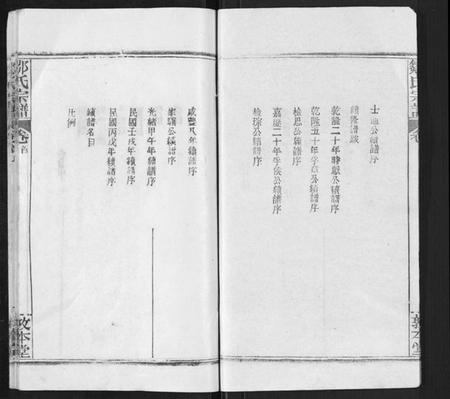 鄒氏宗譜
卷
敦本堂
士迪公續譜序
乾隆二十年時獻公續譜序
乾隆五十年孚章公續譜序
檢思公續譜序
嘉慶二十年孚侯公續譜序
檢琮公續譜序
咸豐八年續譜序
公續譜序
光緒甲午年續譜序
民國壬戌年續譜序
民國丙戌年續譜序
續譜名目
凡例
鄒氏宗譜
卷首
敦本堂